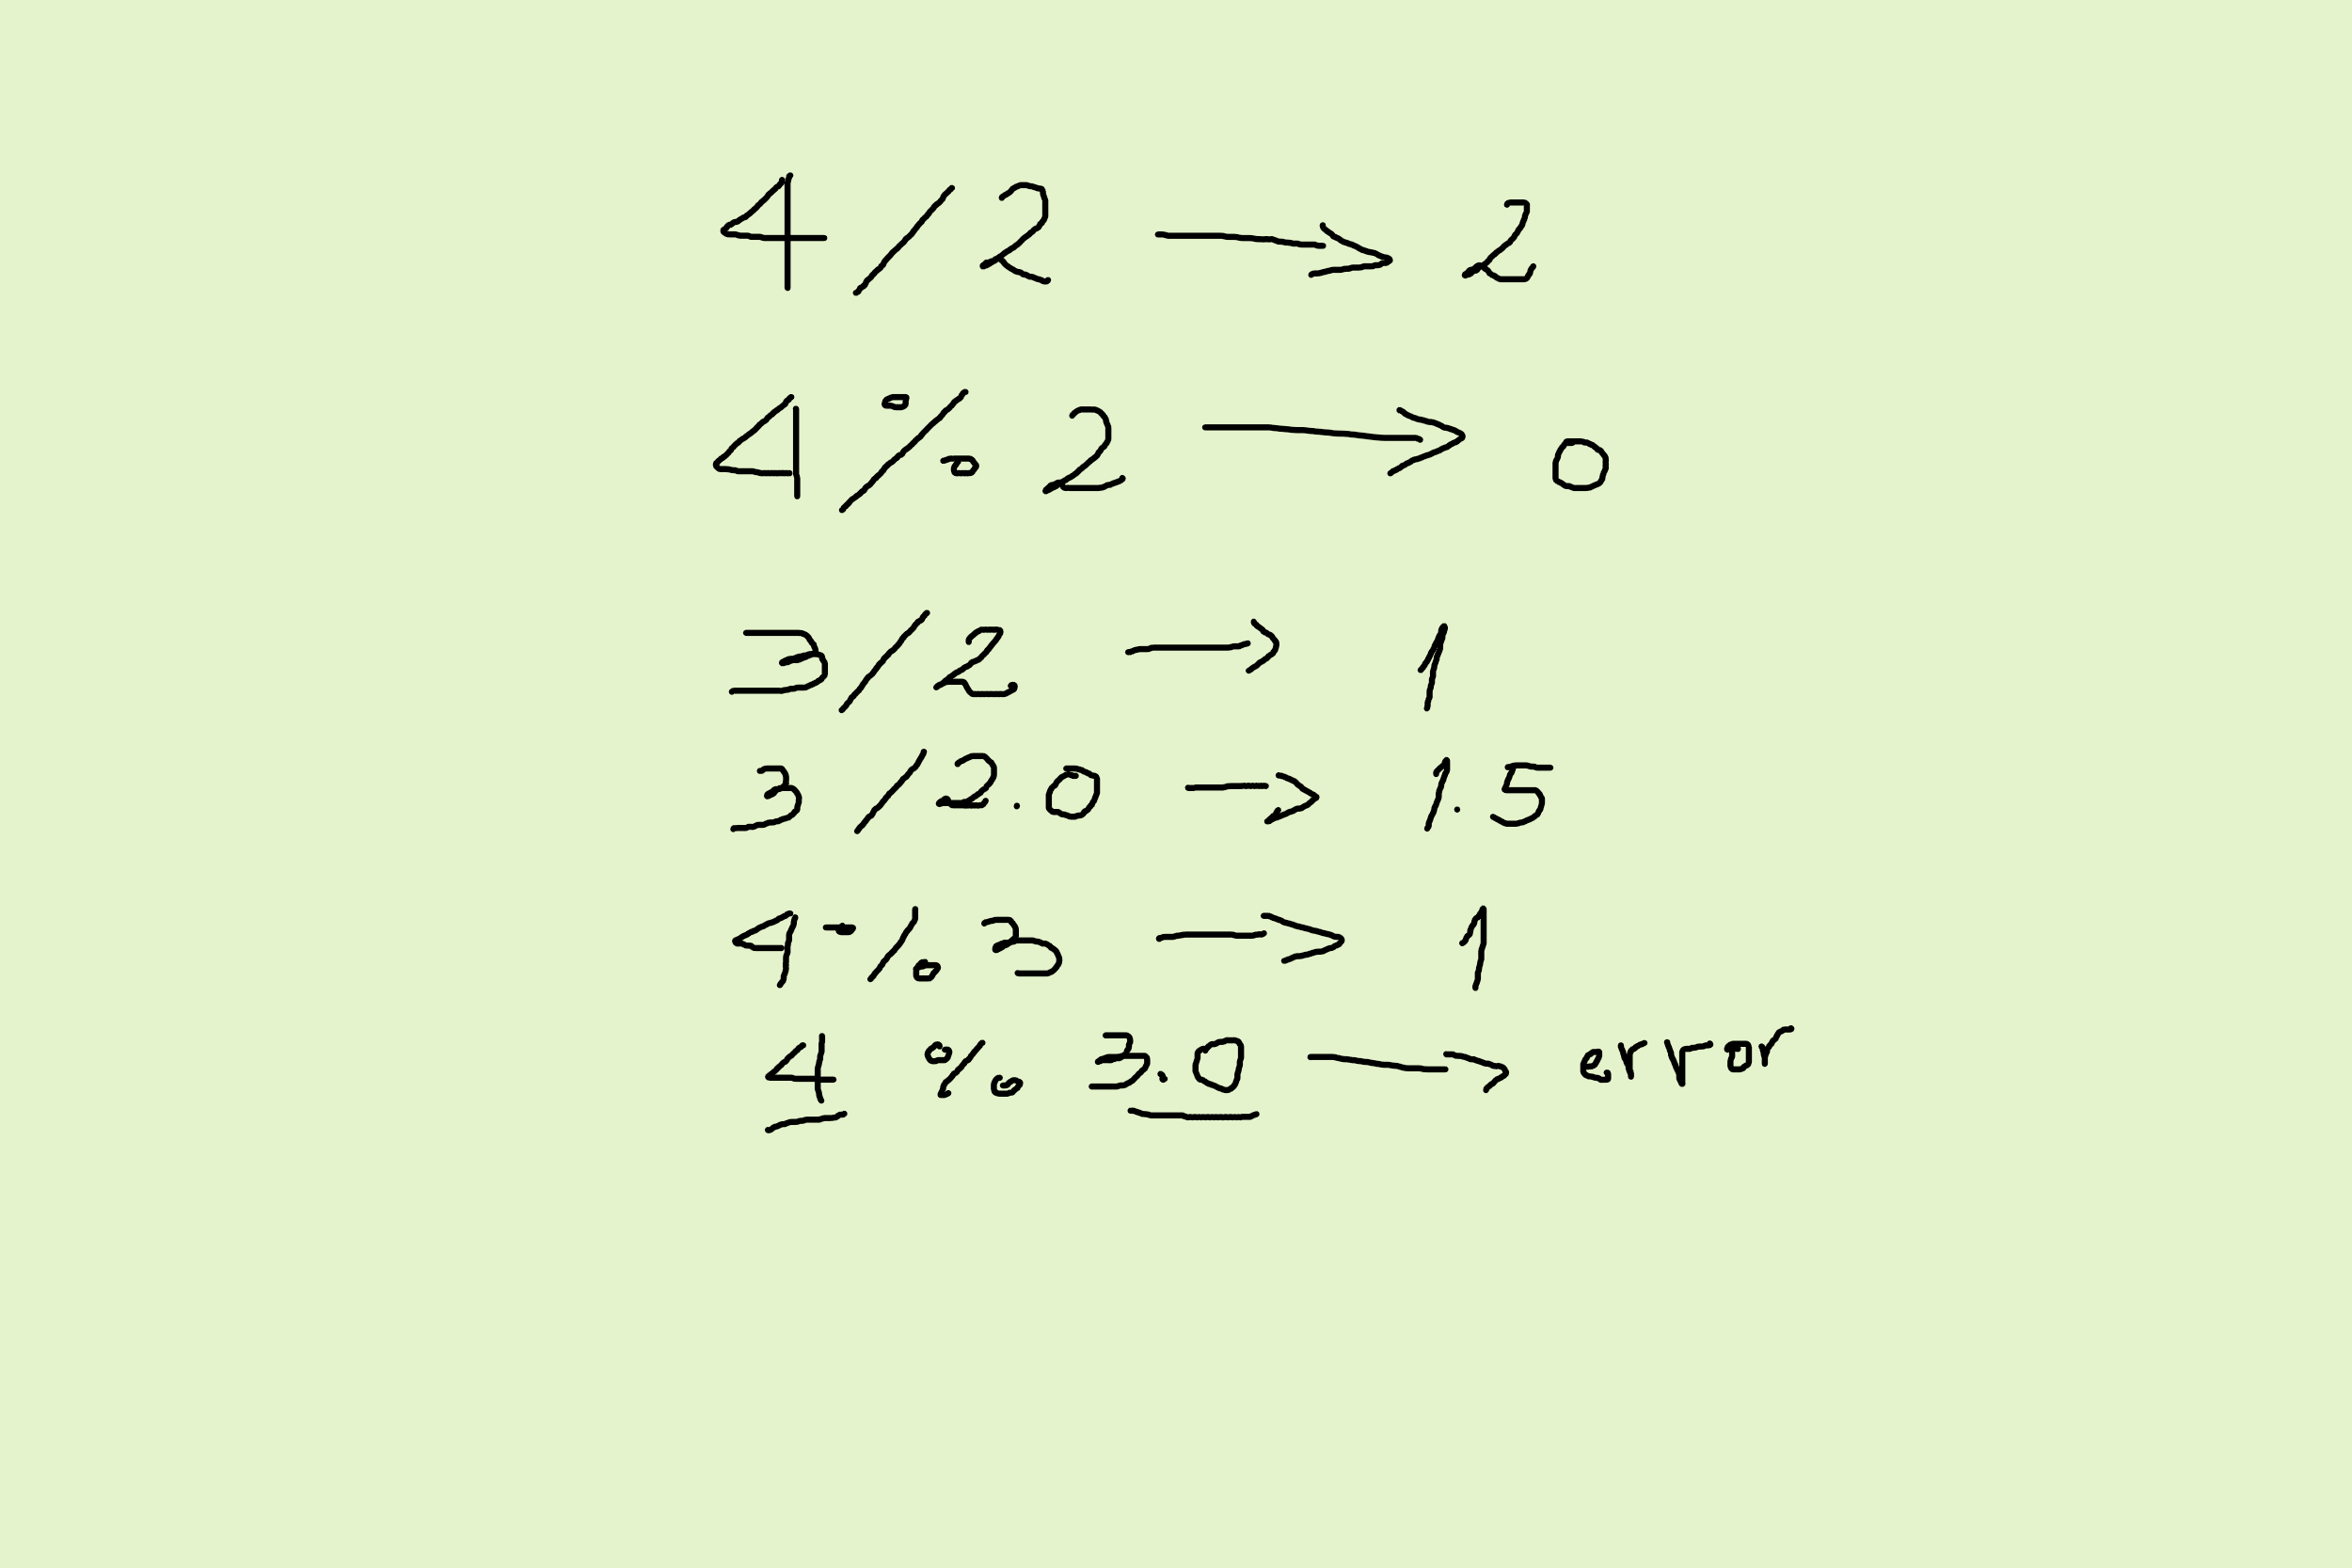 4/2 → 2
4%2 → 0
3/2 → 1
3/2.0 → 1.5
4%3 → 1
4 % 3.0 → error